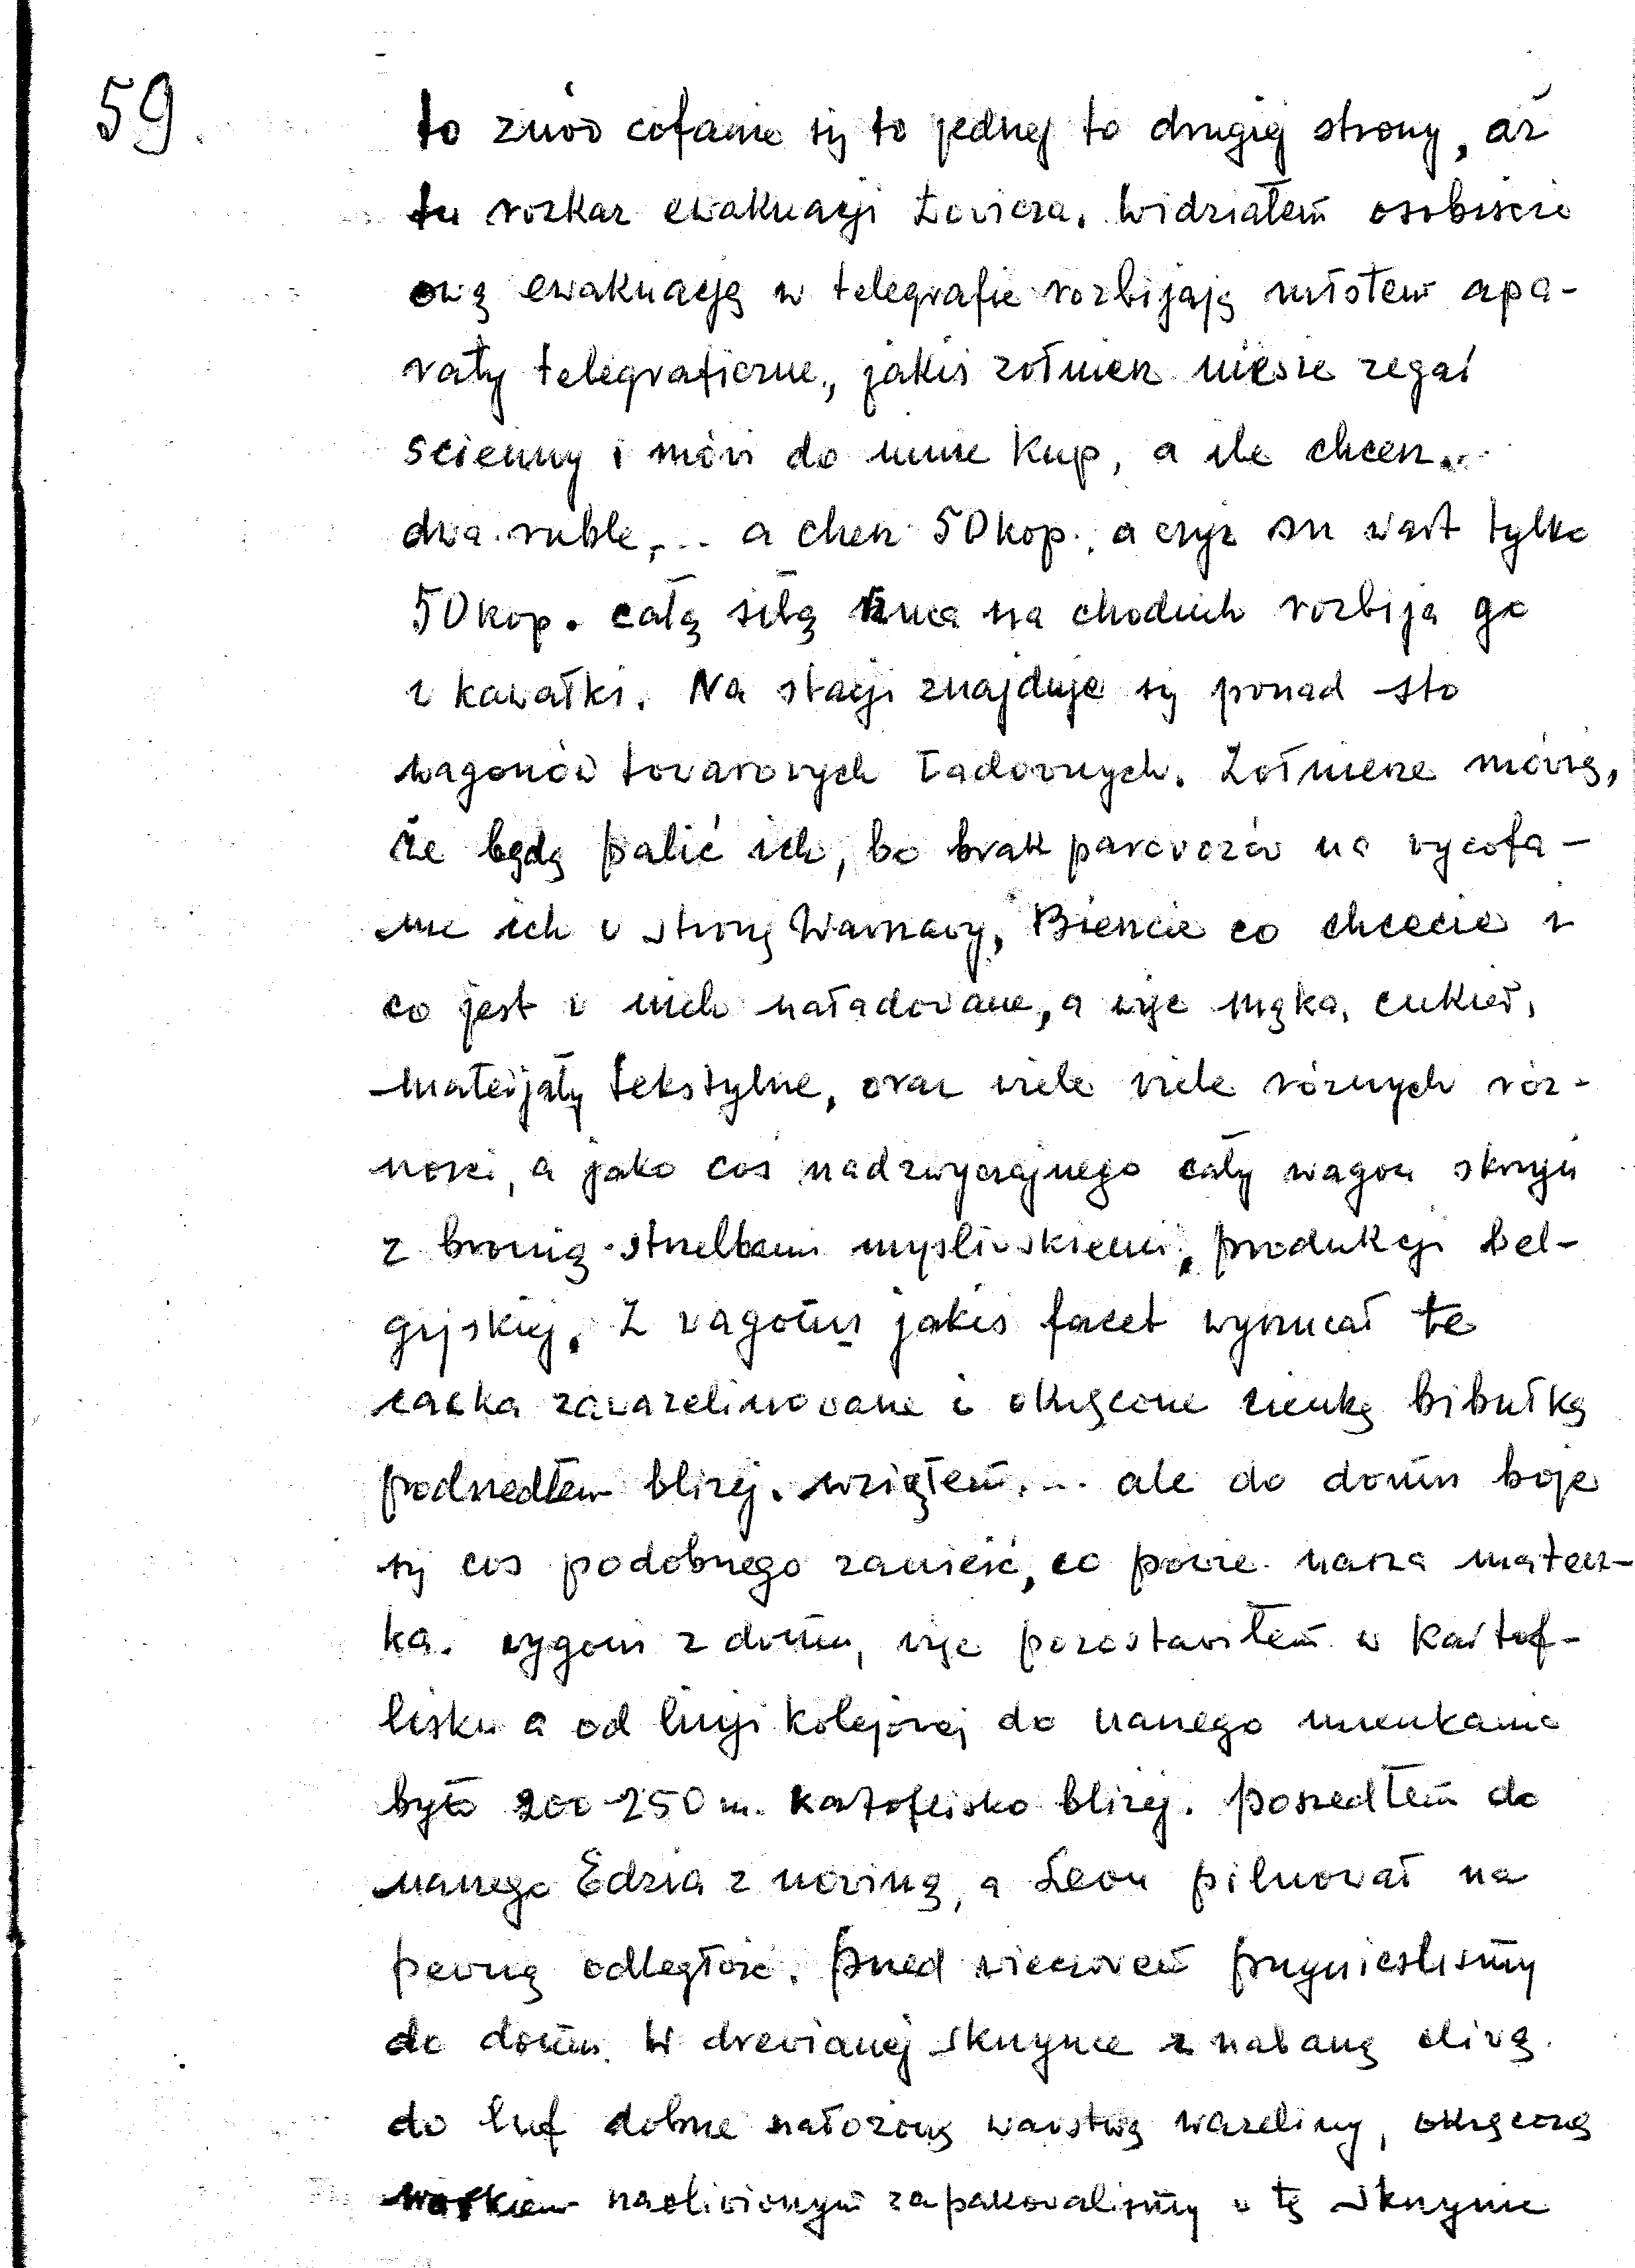 59.
to znów cofanie się to jednej to drugiej strony, aż
tu rozkaz ewakuacji Łowicza. Widziałem osobiście
ową ewakuację w telegrafie rozbijają młotem apa-
raty telegraficzne, jakiś żołnierz niesie zegar
ścienny i mówi do mnie kup, a ile chcesz...
dwa ruble,... a chcesz 50 kop., a czyż on wart tylko
50 kop. całą siłą rzuca na chodnik rozbija go
w kawałki. Na stacji znajduje się ponad sto
wagonów towarowych ładownych. Żołnierze mówią,
że będą palić ich, bo brak parowozów na wycofa-
nie ich w stronę Warszawy, Bierzcie co chcecie i
co jest w nich naładowane, a więc mąka, cukier,
materjały tekstylne, oraz wiele wiele różnych róż-
ności, a jako coś nadzwyczajnego cały wagon skrzyń
z bronią strzelbami myśliwskiemi, produkcji bel-
gijskiej. Z wagonu jakiś facet wyrzucał te
cacka zawazelinowane i okręcone cienką bibułką
podszedłem bliżej. wziąłem... ale do domu boję
się coś podobnego zanieść, co powie nasza matecz-
ka. wygoni z domu, więc pozostawiłem w kartof-
lisku a od linji kolejowej do naszego mieszkania
było 200-250 m. kartoflisko bliżej. poszedłem do
naszego Edzia z nowiną, a Leon pilnował na
pewną odległość. Przed wieczorem przynieśliśmy
do domu. W drewianej skrzynce z nalaną oliwą
do luf dobrze nałożoną warstwą wazeliny, okręconą
workiem naoliwionym zapakowaliśmy w tę skrzynię